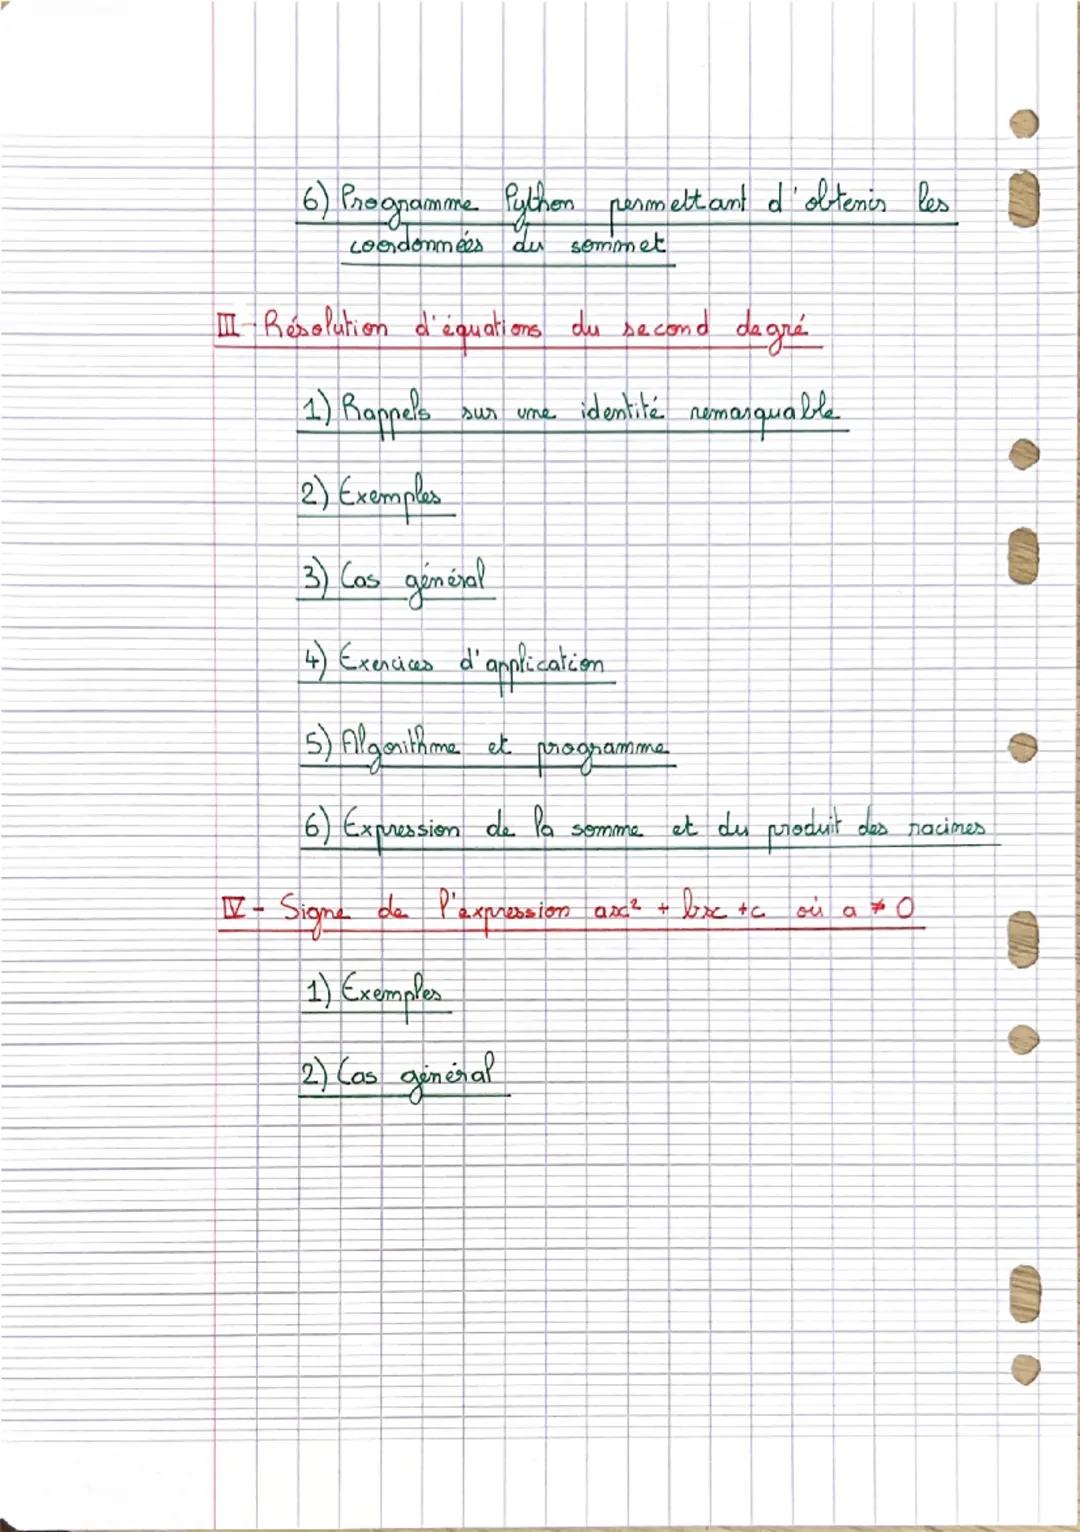 6) Programme Python permettant d'obtenir les
coordonnées du sommet
III - Résolution d'équations du second degré
1) Rappels sur une identité remarquable
2) Exemples
3) Cas général
4) Exercices d'application
5) Algorithme et programme
6) Expression de la somme et du produit des racines
IV - Signe de l'expression ax² + bx + c où a ≠ 0
1) Exemples
2) Cas général